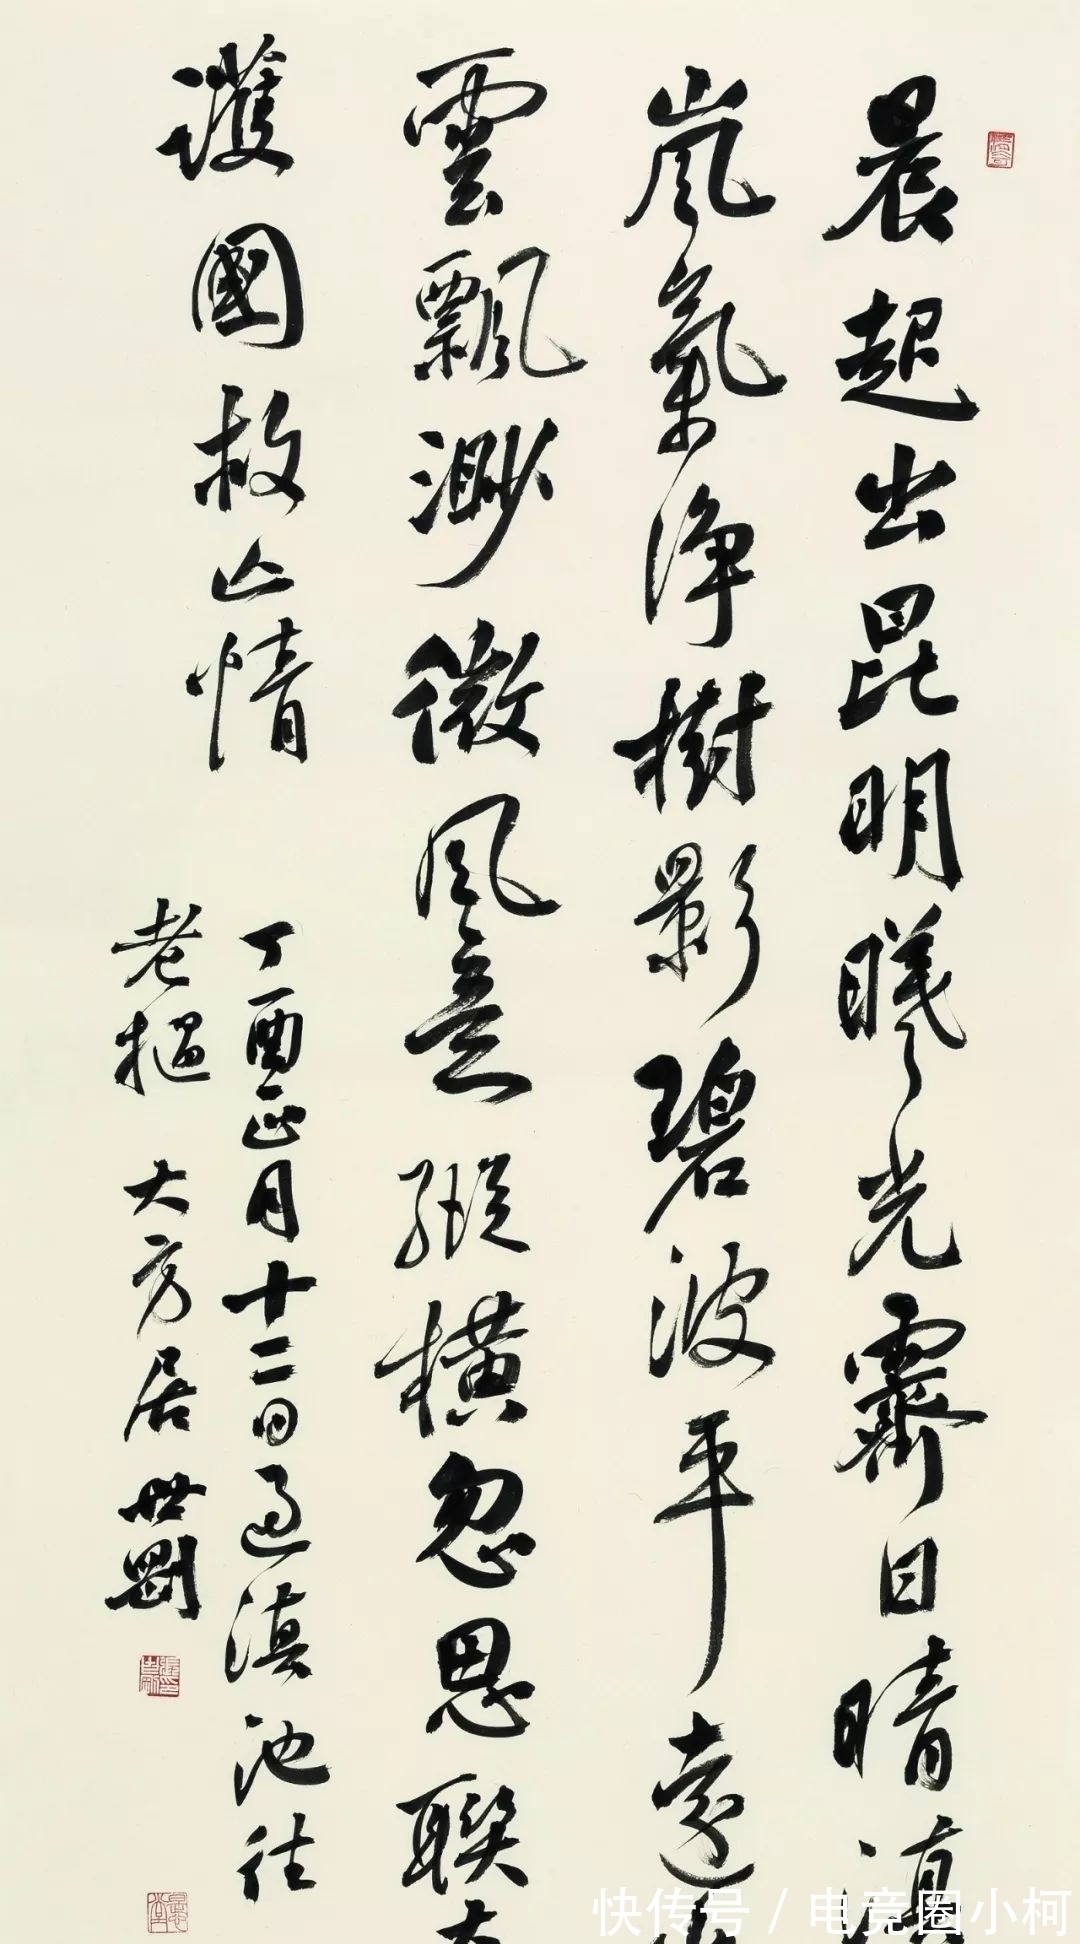 晨起出昆明曦光霽日晴滇
嵐氣淨樹影碧波平遠
雲飄渺微風意縱橫忽思聯大
護國故山情
丁酉正月十二日過滇池往
老撾 大方居 世剛
快传号 / 电竞圈小柯